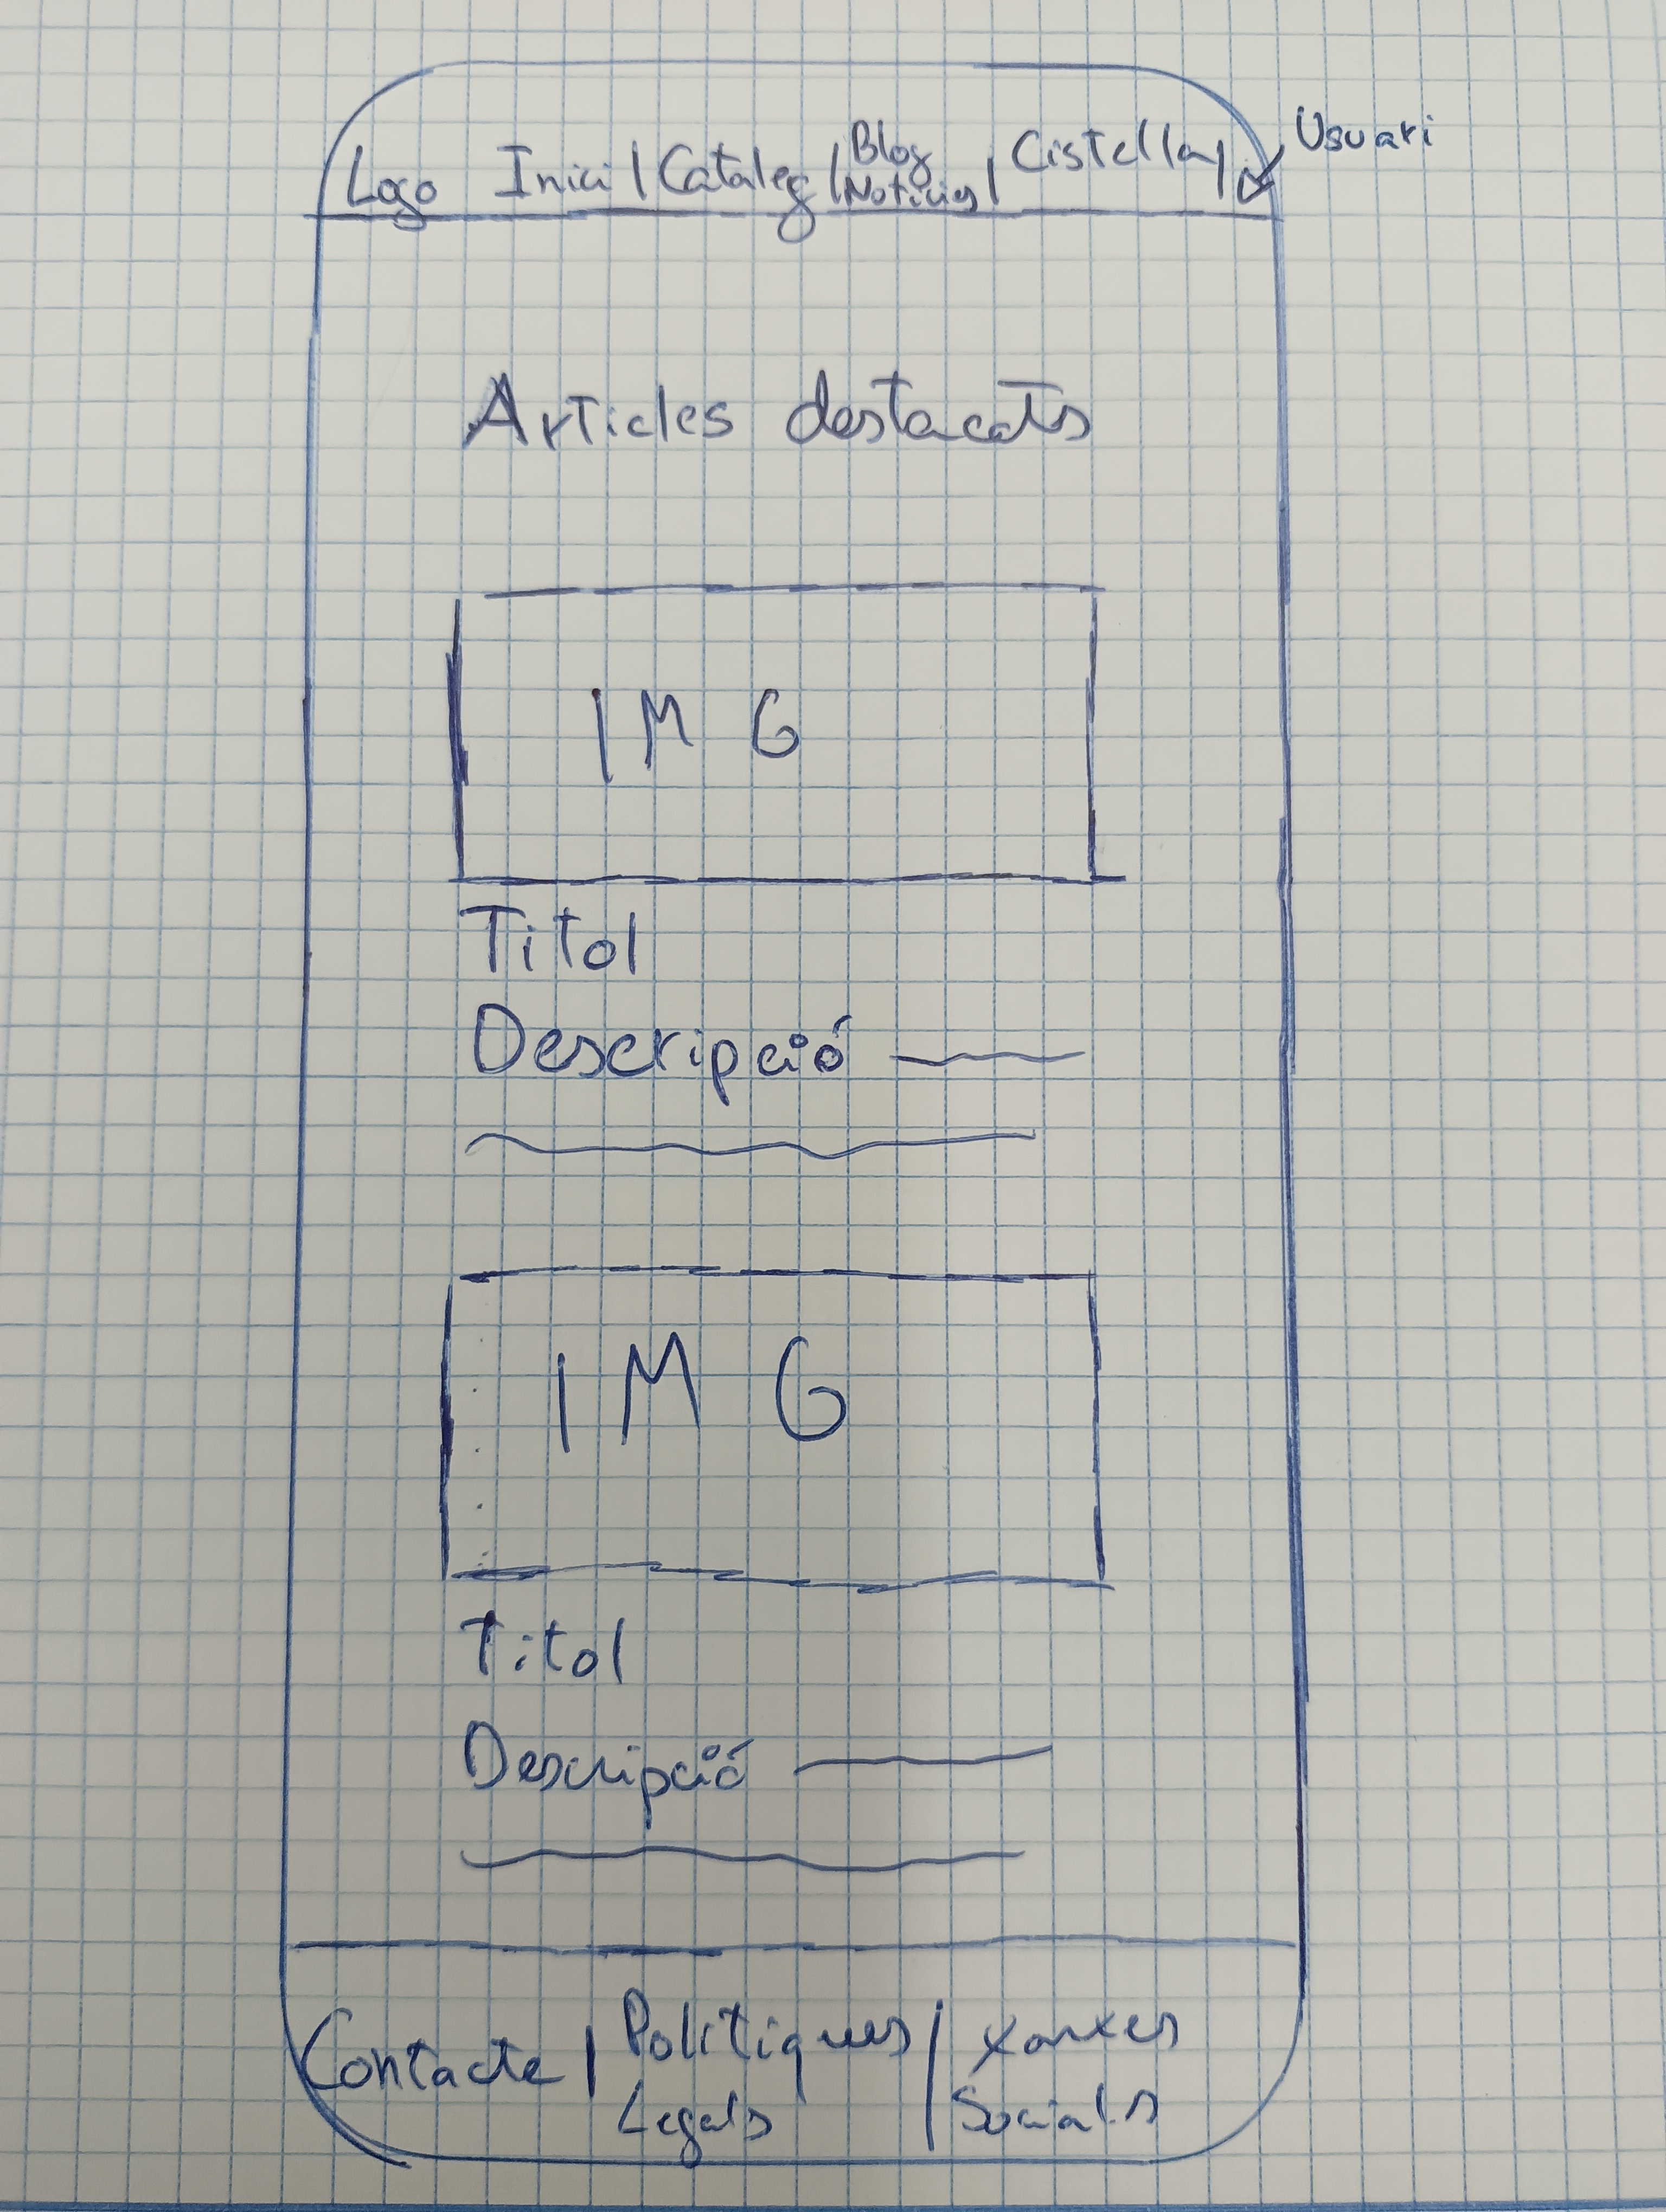 Logo Inici | Catàleg | Blog Notícies | Cistella | Usuari
Articles destacats
IMG
Titol
Descripció
IMG
Titol
Descripció
Contacte | Polítiques Legals | Xarxes Socials